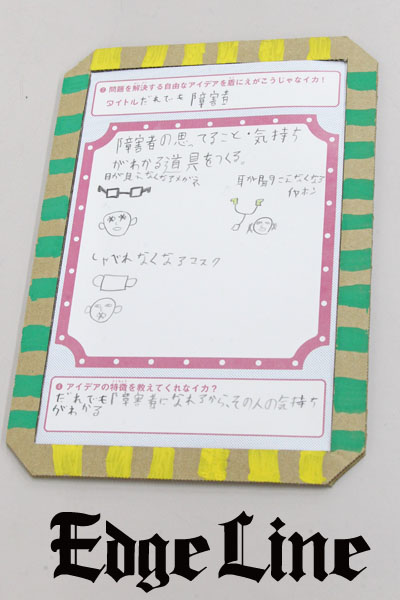 ❸ 問題を解決する自由なアイデアを盾にえがこうじゃなイカ！
タイトル だれでも障害者
障害者の思ってること・気持ち
がわかる道具をつくる。
目が見えなくなるメガネ
耳が聞こえなくなる
イヤホン
しゃべれなくなるマスク
❹ アイデアの特徴を教えてくれなイカ？
だれでも障害者になれるから、その人の気持ち
がわかる
Edge Line